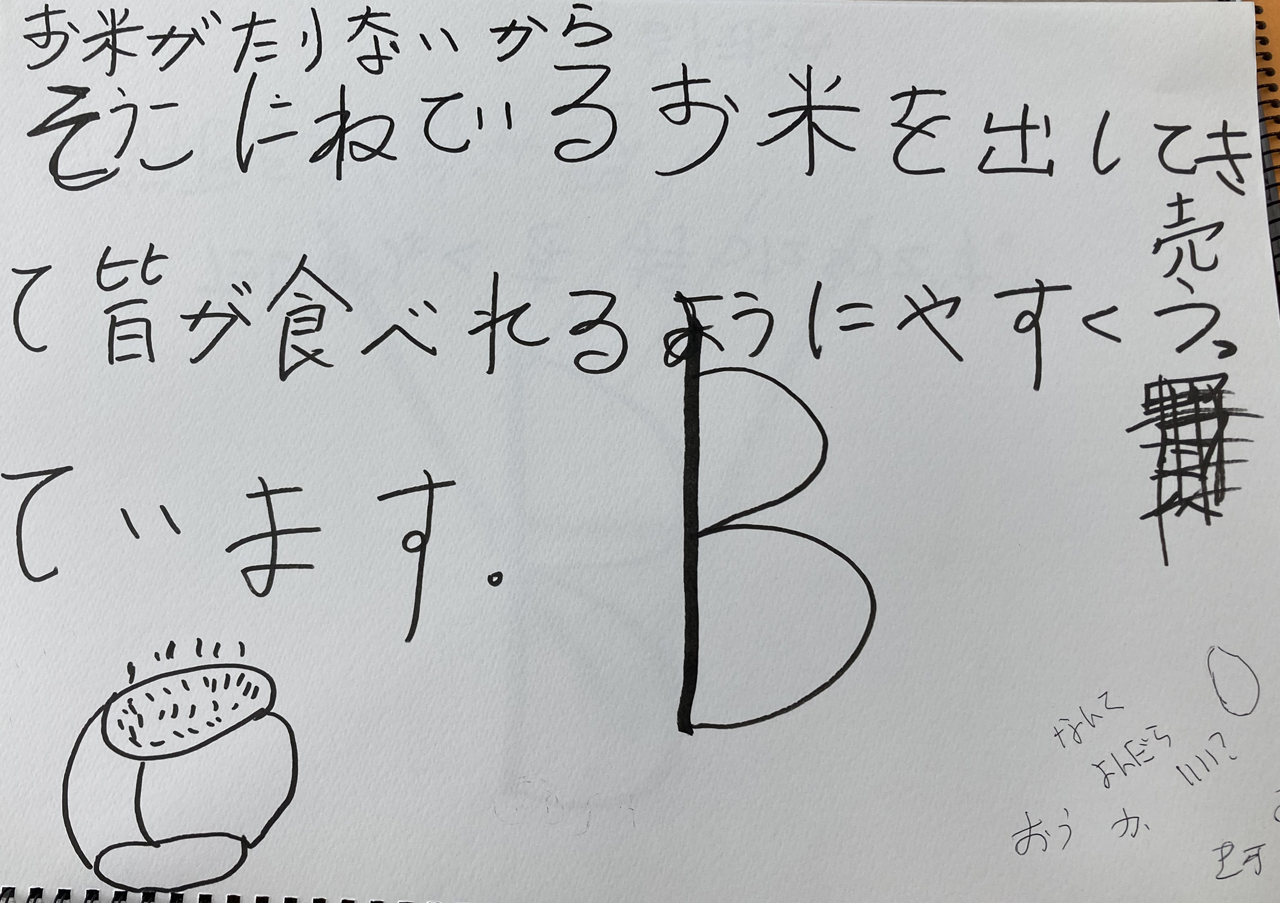 お米がたりないから
そうこにねているお米を出してき
て皆が食べれるようにやすく売う。
ています.
B
なんて
よんだら
いい?
おうか